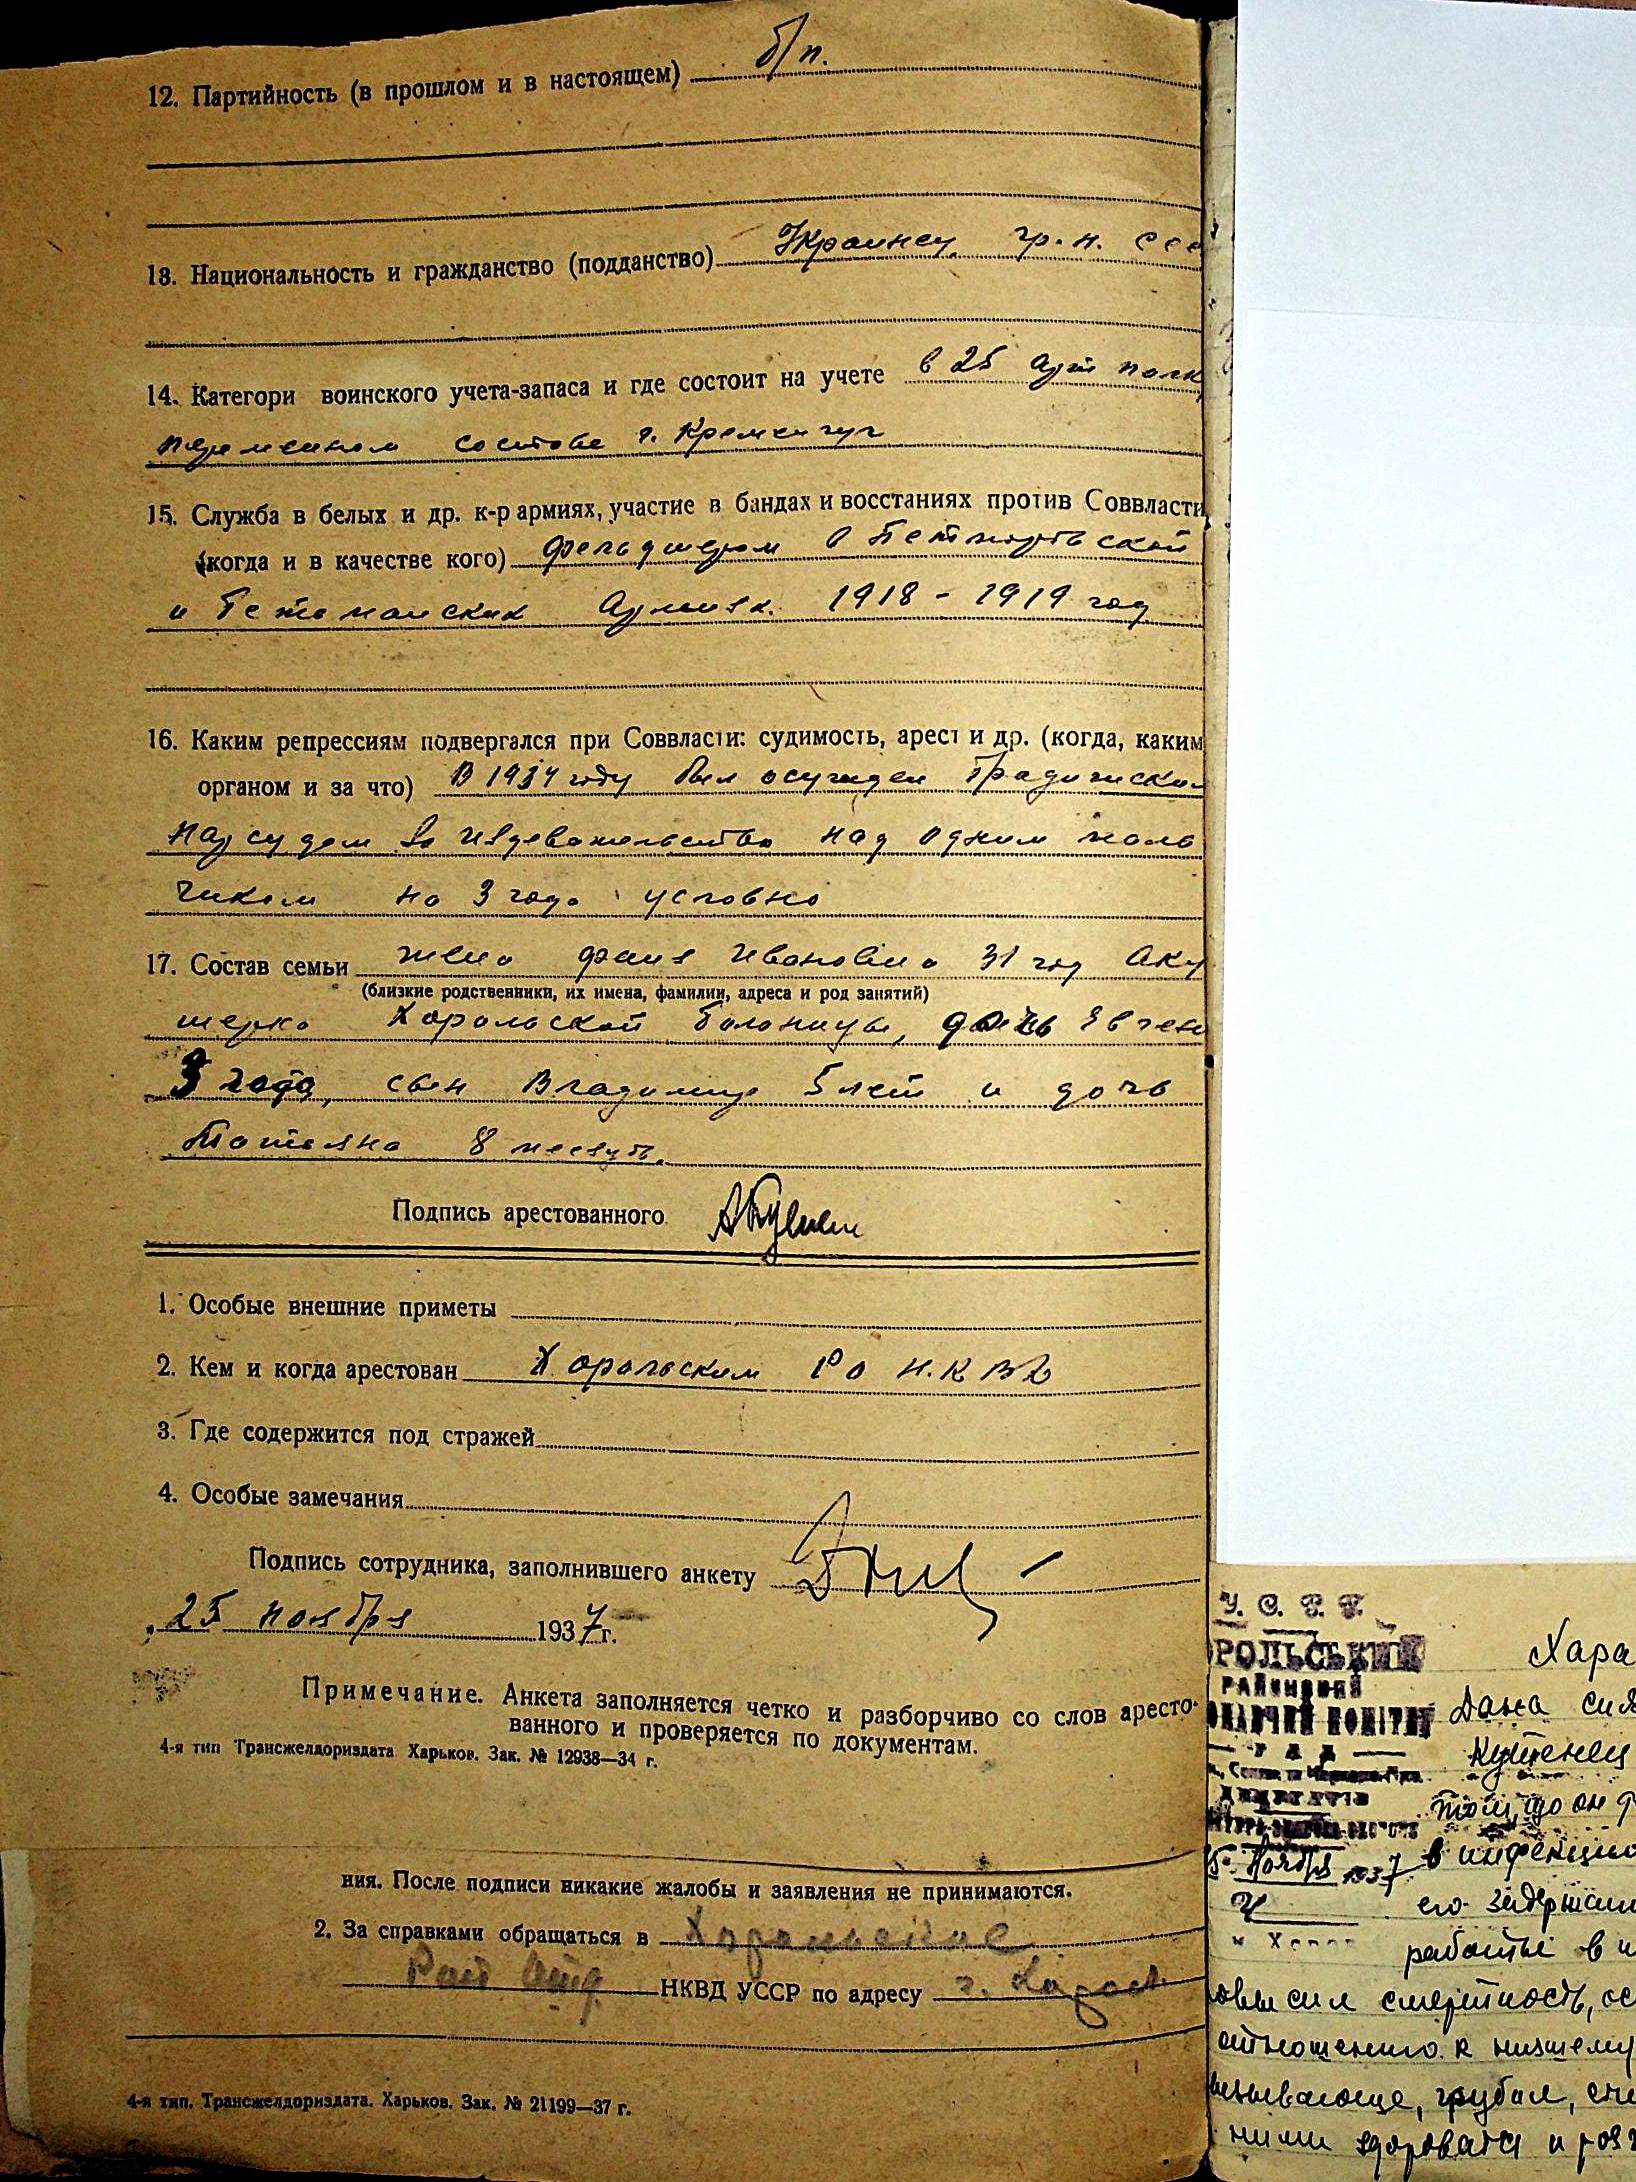 12. Партийность (в прошлом и в настоящем) б/п.
13. Национальность и гражданство (подданство) Украинец, гр-н. ССС
14. Категори воинского учета-запаса и где состоит на учете в 25 Арт полк
переменном составе г. Кременчуг
15. Служба в белых и др. к-р армиях, участие в бандах и восстаниях против Соввласти
(когда и в качестве кого) фельдшером в Петлюровской
и Гетманских Армиях. 1918 - 1919 год
16. Каким репрессиям подвергался при Соввласти: судимость, арест и др. (когда, каким
органом и за что) В 1934 году был осужден Градижским
Нарсудом за издевательство над одним маль
чиком на 3 года условно
17. Состав семьи жена Фаня Ивановна 31 год Аку
(близкие родственники, их имена, фамилии, адреса и род занятий)
шерка Хорольской больницы, дочь Евген
3 года, сын Владимир 5 лет и дочь
Татьяна 8 месяц.
Подпись арестованного
1. Особые внешние приметы
2. Кем и когда арестован Хорольским РО Н.К.ВД
3. Где содержится под стражей
4. Особые замечания
Подпись сотрудника, заполнившего анкету
„25 ноября 1937 г.
Примечание. Анкета заполняется четко и разборчиво со слов аресто-
ванного и проверяется по документам.
4-я тип Трансжелдориздата Харьков. Зак. № 12938—34 г.
ния. После подписи никакие жалобы и заявления не принимаются.
2. За справками обращаться в Хорольское
Рай Отд НКВД УССР по адресу г. Хорол
4-я тип. Трансжелдориздата. Харьков. Зак. № 21199—37 г.
У. С. Р. Р.
РОЛЬСЬКИЙ
РАЙОННИЙ
ОНАВЧИЙ КОМІТЕТ
Ноября 1937
Хара
Дана
Кутенец
том, що он
в инфекцио
его
работы в
смертность, ос
отношению к низшему
грубил,
ними здороватся и